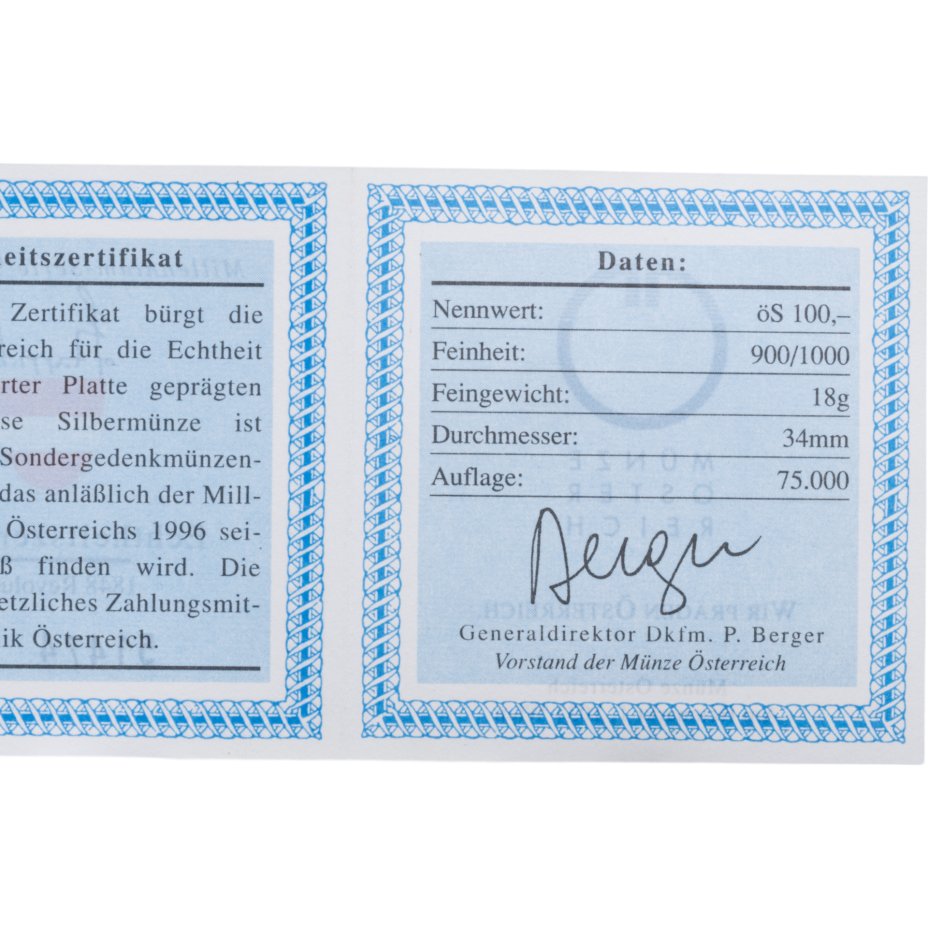 eitszertifikat
Zertifikat bürgt die
reich für die Echtheit
rter Platte geprägten
se Silbermünze ist
Sondergedenkmünzen-
das anläßlich der Mill-
Österreichs 1996 sei-
ß finden wird. Die
etzliches Zahlungsmit-
ik Österreich.
Daten:
Nennwert: öS 100,–
Feinheit: 900/1000
Feingewicht: 18g
Durchmesser: 34mm
Auflage: 75.000
Berger
Generaldirektor Dkfm. P. Berger
Vorstand der Münze Österreich
MÜNZE
ÖSTER
REICH
WIR PRÄGEN ÖSTERREICH.
Münze Österreich